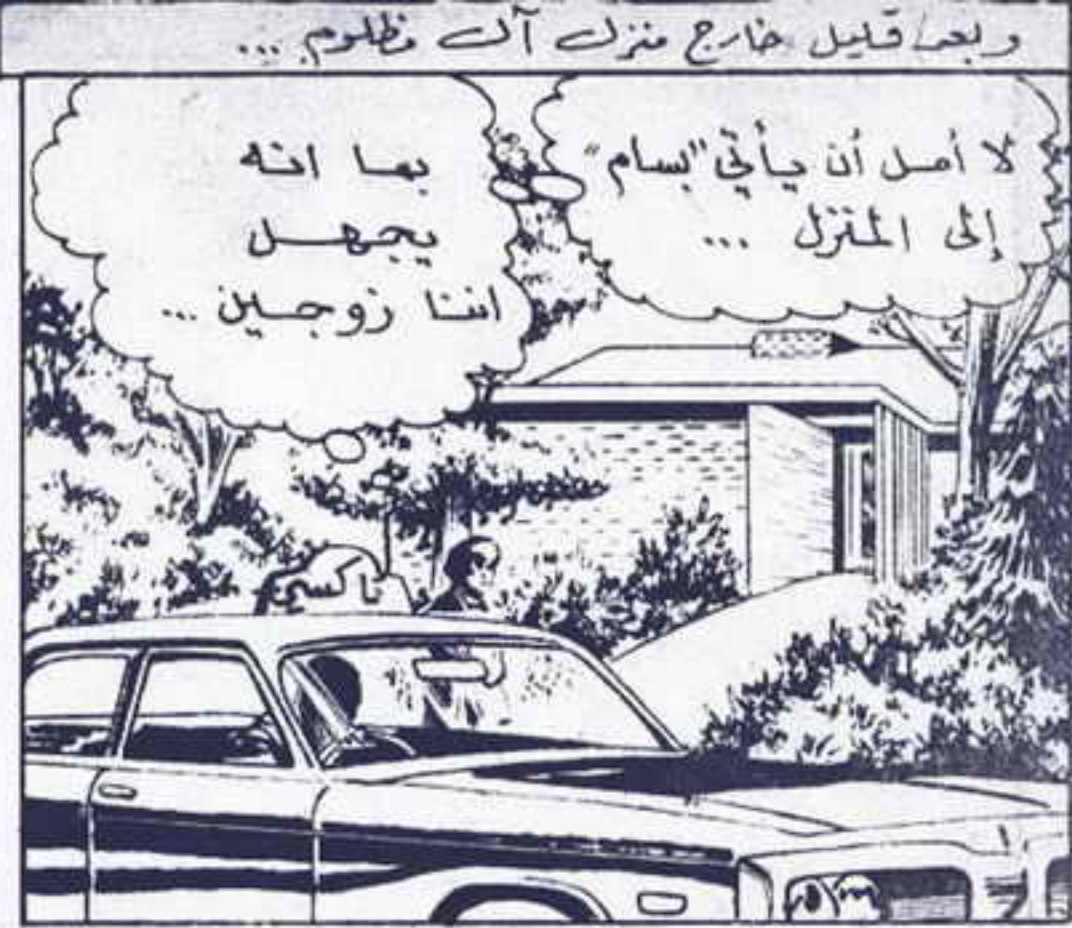 وبعد قليل خارج منزل آل مظلوم ...
لا أمل أن يأتي "بسام"
إلى المنزل ...
بما انه
يجهل
اننا زوجين ...
تاكسي